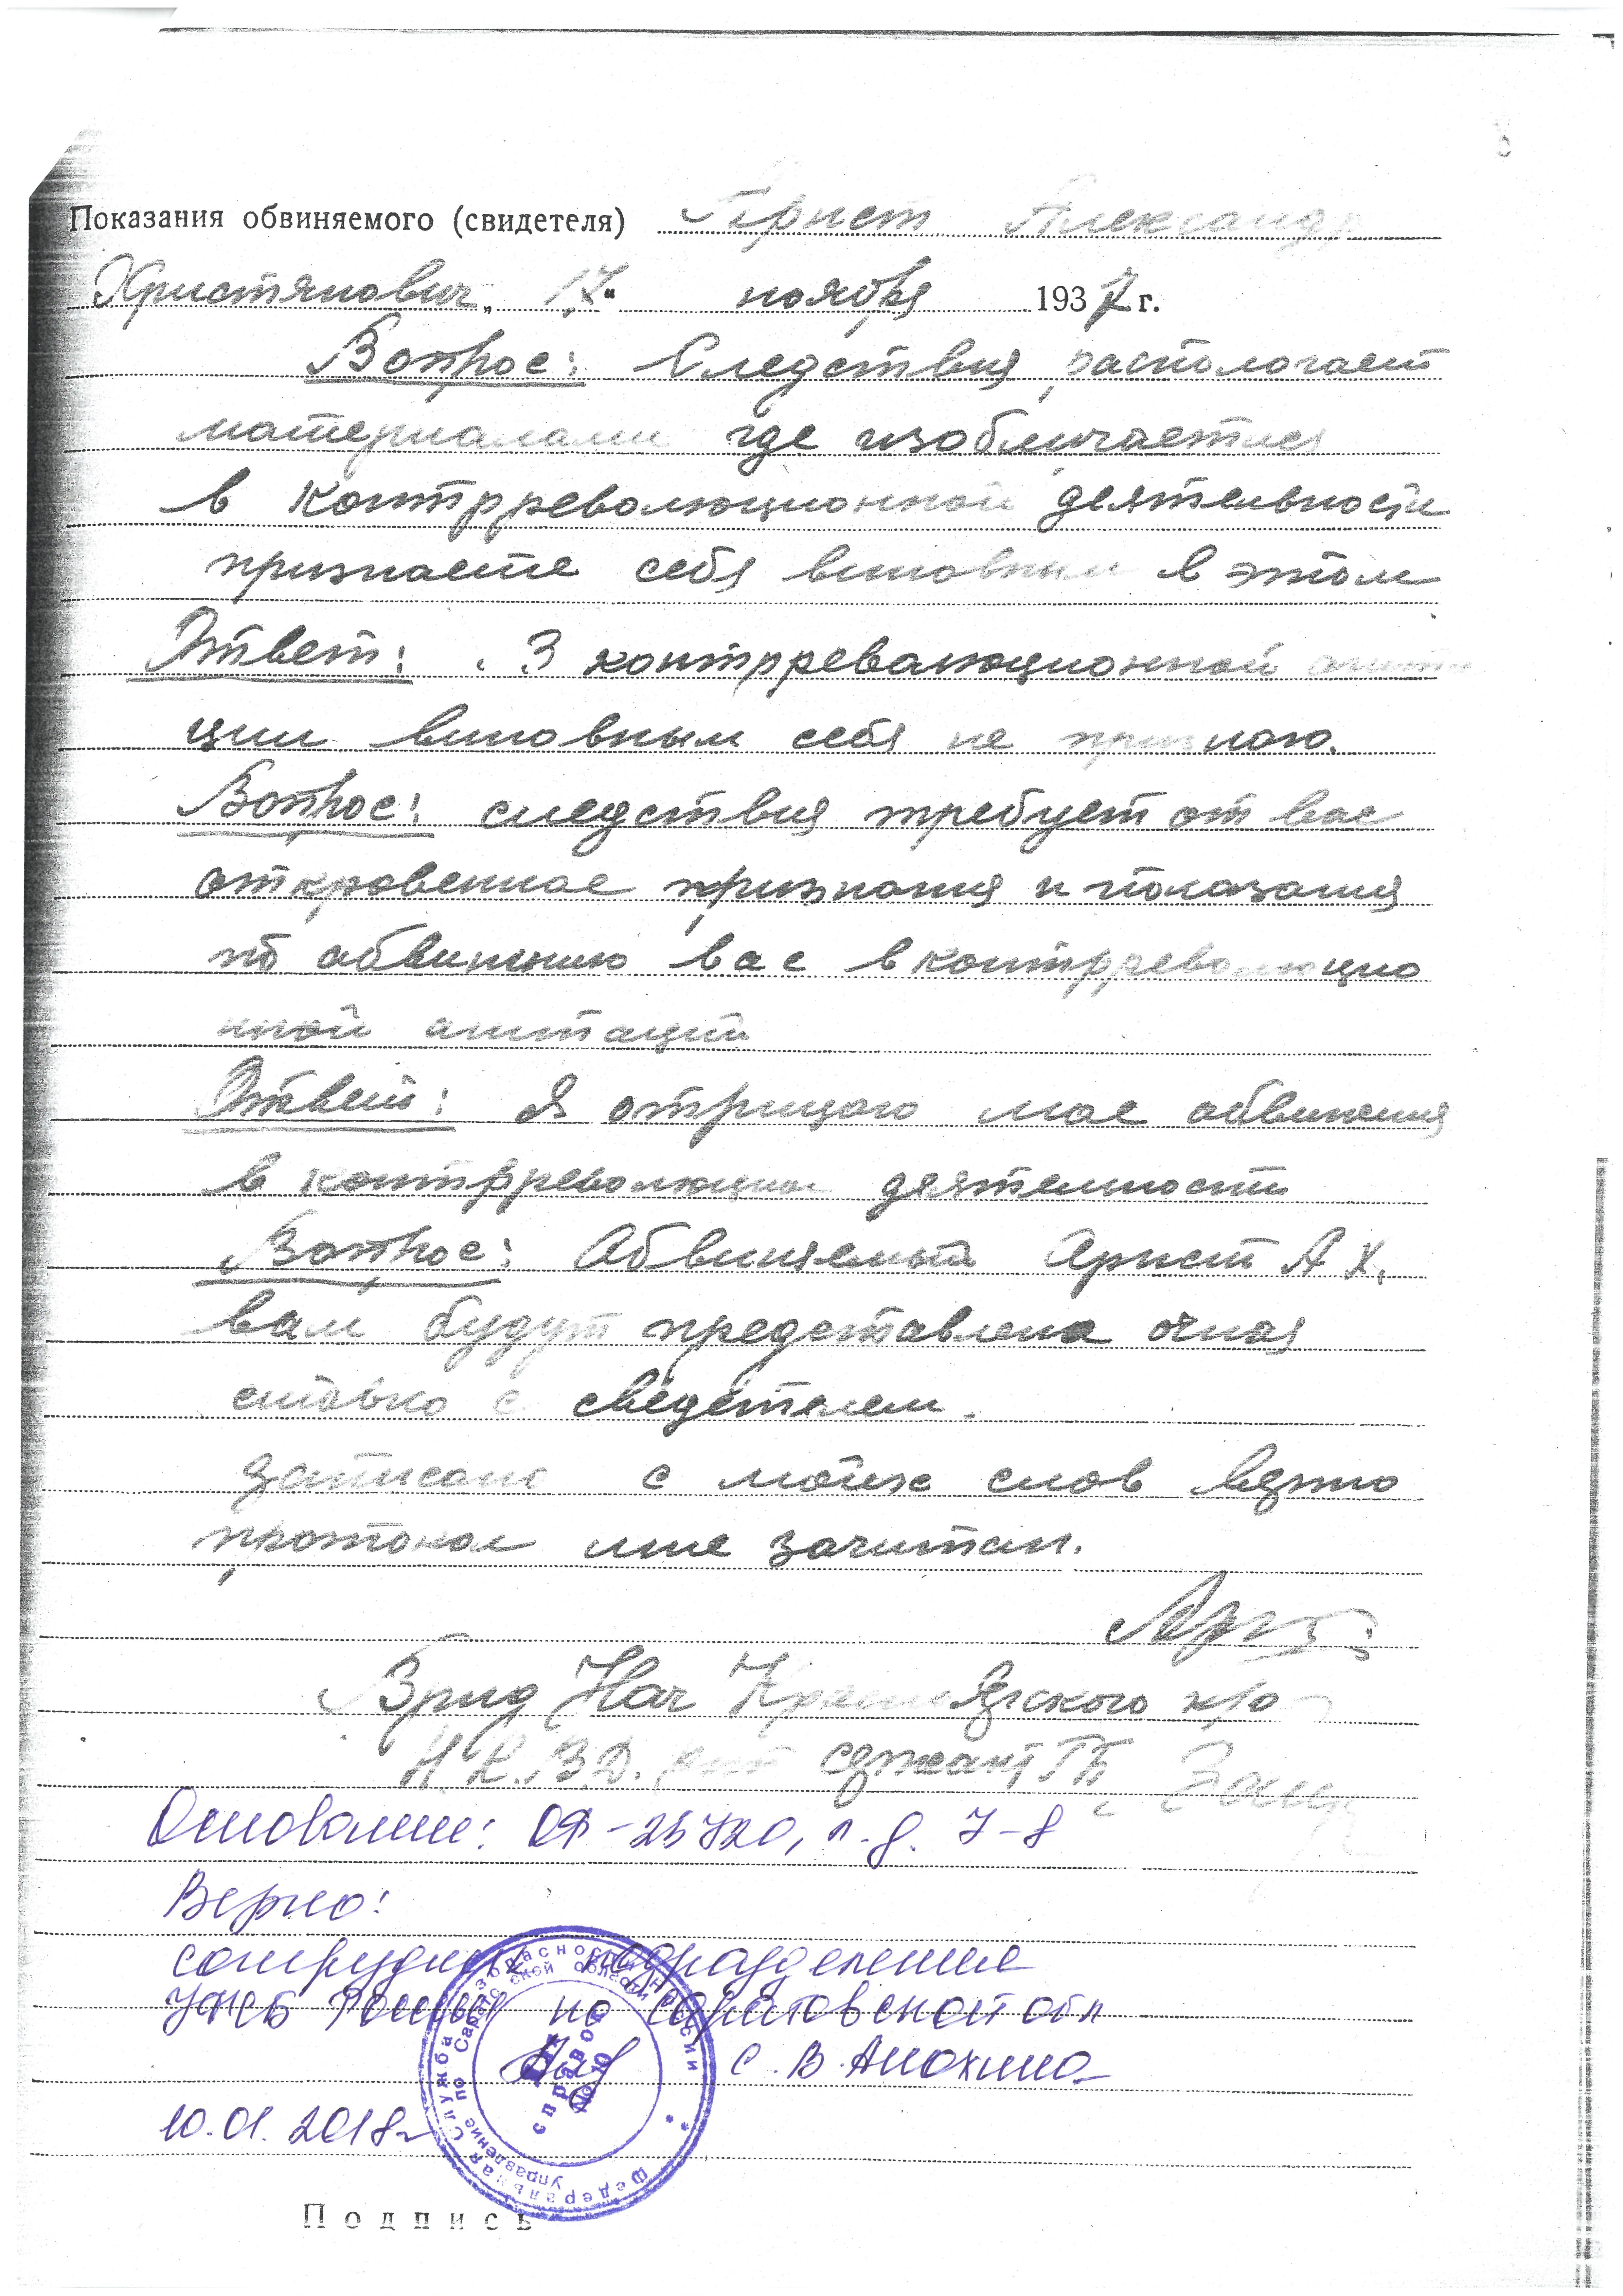 8
Показания обвиняемого (свидетеля) Арнст Александр
Христянович „ 17 “ ноября 1937 г.
Вопрос: Следствия распологает
материалами где изобличаетися
в контрреволюционной деятельности
признаете себя виновным в этом
Ответ: . В контрревалюционной агита
ции виновным себя не признаю.
Вопрос: следствия требует от вас
откровенное признания и показания
по абвинению вас в контрреволюцио
нной агитации
Ответ: Я отрицаю мое абвинения
в контрреволюцион деятельности
Вопрос: Абвиняемый Арнст А Х.
вам будут представлена очная
ставка с сведетелем.
Записано с моих слов верно
протокол мне зачитан.
Врид Нач Красноярского р/о
Н.К.В.Д. сержант ГБ
Основание: ОФ-25720, л.д. 7-8
Верно:
сотрудник подразделения
УФСБ России по Саратовской обл
С.В. Анохина
10.01.2018г
Федеральная служба безопасности России
Управление по Саратовской области
Для справок
№ 10
Подпись